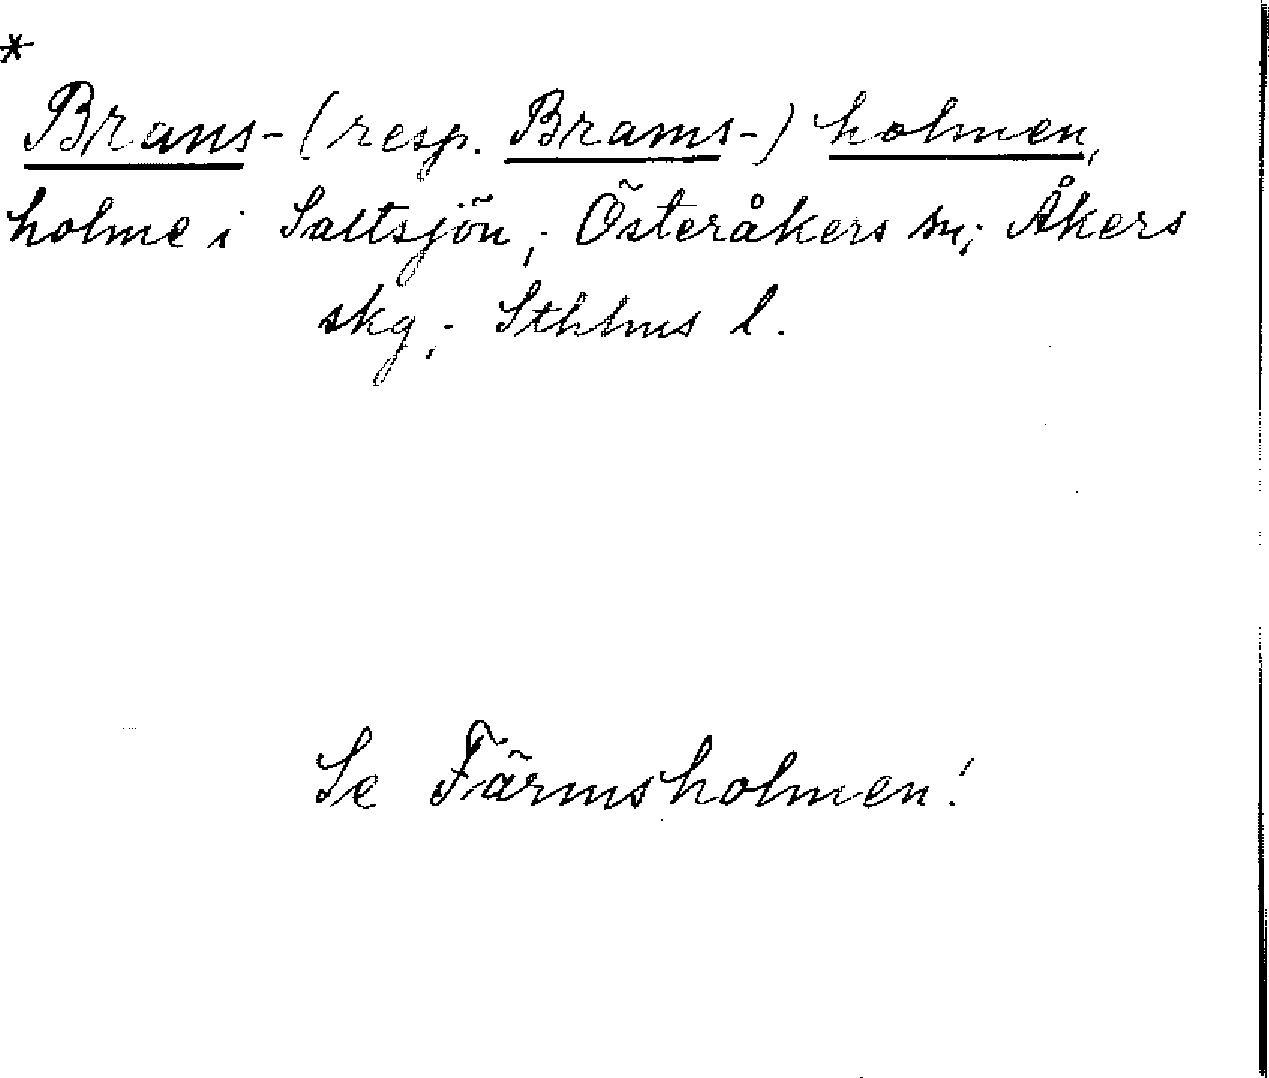 *
Brans- (resp. Brams-) holmen,
holme i Saltsjön; Österåkers sn; Åkers
skg; Sthlms l.
Se Färmsholmen!